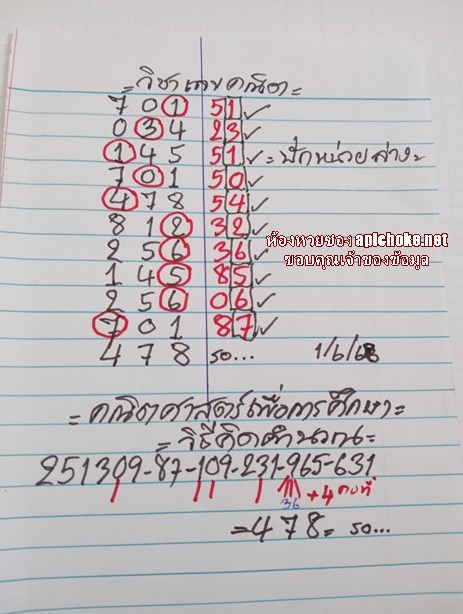 =วิชาเลขคณิต=
701 51✓
034 23✓
145 51✓=ปักหน่วยล่าง=
701 50✓
478 54✓
812 32✓
256 36✓
145 85✓
256 06✓
701 87✓
478 รอ... 1/6/68
ห้องหวยซอง aplchoke.net
ขอบคุณเจ้าของข้อมูล
=คณิตศาสตร์เพื่อการศึกษา=
=วิธีคิดคำนวณ=
251309-87-109-231-965-631
36 +4 คงที่
=478= รอ...